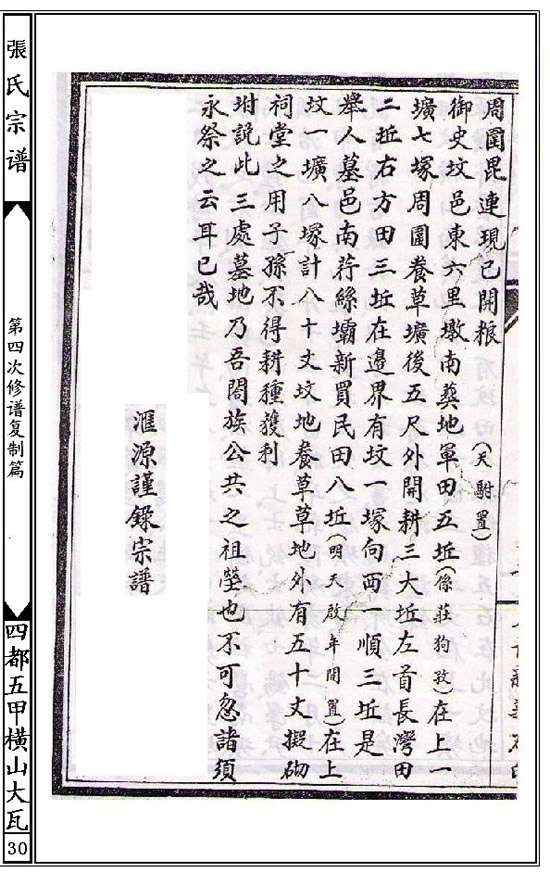 周圍毘連現已開粮
(天尉置)
御史坟邑東六里墩南葬地軍田五坵(係莊狗孜)在上一
壙七塚周圍養草壙後五尺外開耕三大坵左首長灣田
二坵右方田三坵在邉界有坟一塚向西一順三坵是
舉人墓邑南荇絲壩新買民田八坵(明天啟年間置)在上
坟一壙八塚計八十丈坟地養草草地外有五十丈撥砌
祠堂之用子孫不得耕種獲利
坿説此三處墓地乃吾閤族公共之祖塋也不可忽諸須
永祭之云耳已哉
滙源謹錄宗譜
張氏宗谱
第四次修谱复制篇
四都五甲横山大瓦
30